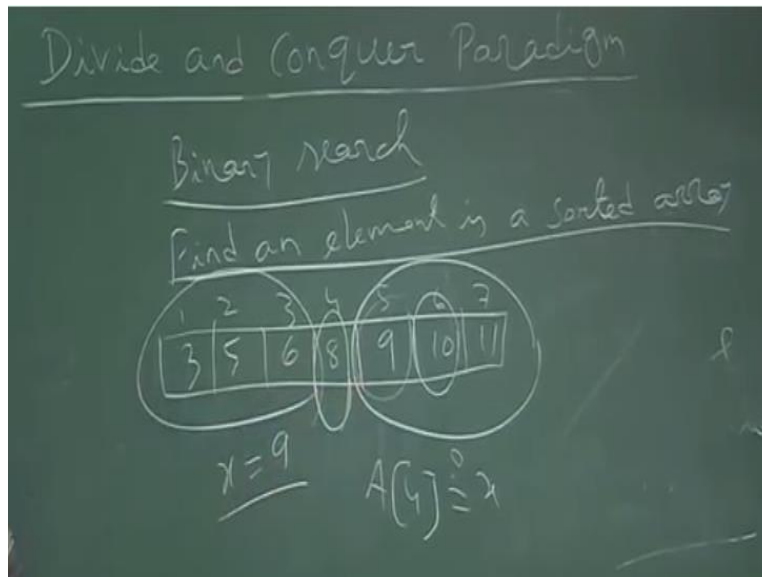 Divide and Conquer Paradigm
Binary search
Find an element in a sorted array
1 2 3 4 5 6 7
3 5 6 8 9 10 11
x = 9
A[4] ≟ x